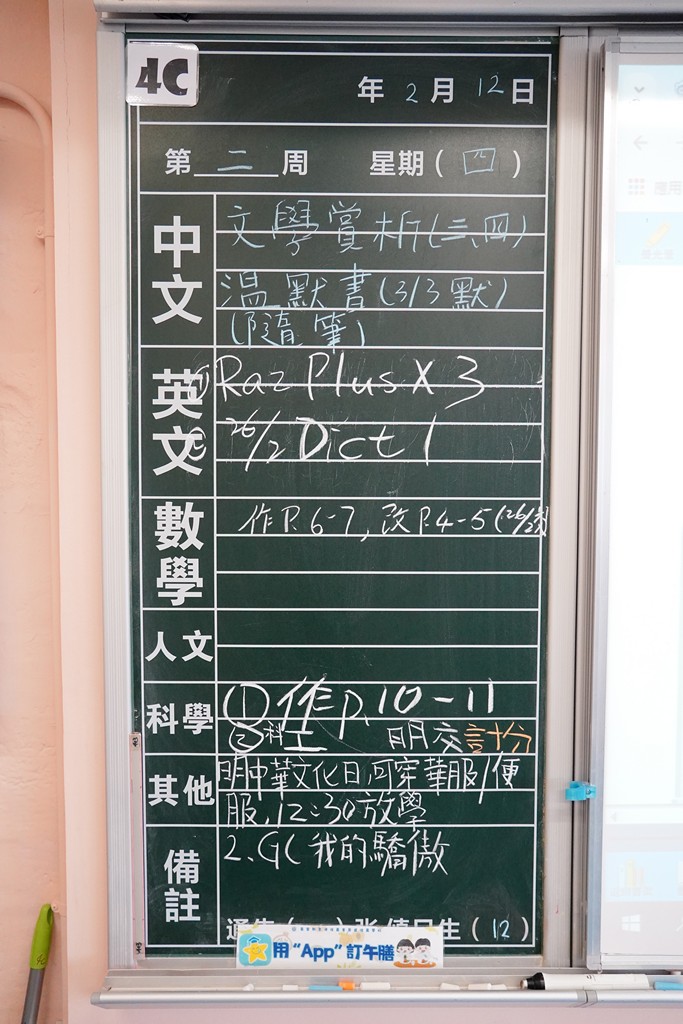 4C
年 2 月 12 日
第 二 周 星期 ( 四 )
中文
文學賞析(三、四)
溫默書(3/3默)
(隨筆)
英文
① Raz Plus X 3
② 26/2 Dict 1
數學
作P. 6-7, 改P. 4-5
人文
科學
① 作P. 10-11
② 科工 明交 計分
其他
明中華文化日,可穿華服/便
服,12:30放學
備註
2. GC 我的驕傲
(12)
用“App”訂午膳
應用